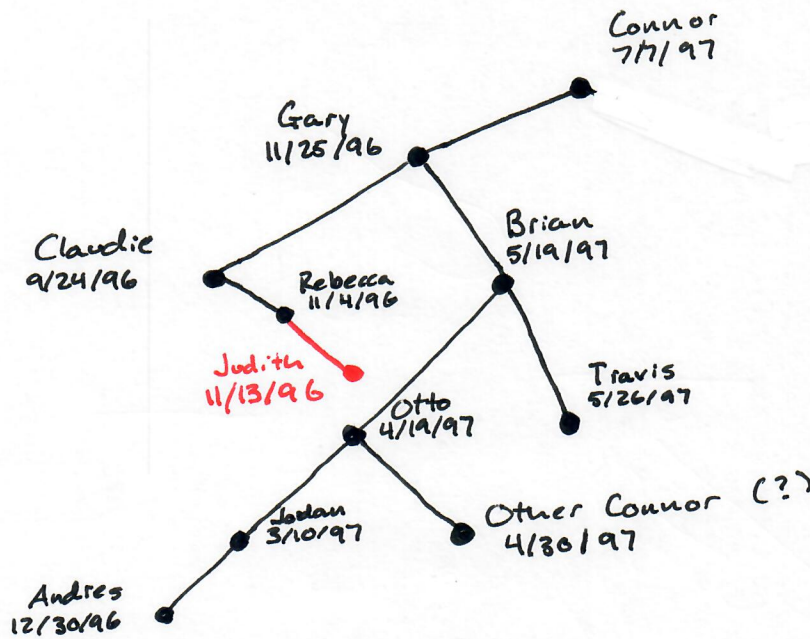 Connor
7/7/97
Gary
11/25/96
Brian
5/19/97
Claudie
9/24/96
Rebecca
11/4/96
Judith
11/13/96
Travis
5/26/97
Otto
4/19/97
Other Connor (?)
4/30/97
Jordan
3/10/97
Andres
12/30/96